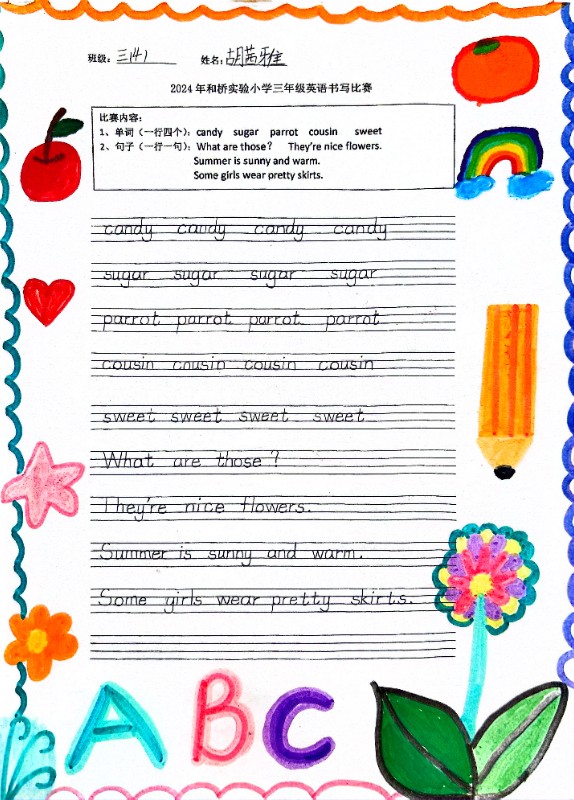 班级：三(4) 姓名：胡茜雅
2024年和桥实验小学三年级英语书写比赛
比赛内容：
1、单词（一行四个）：candy sugar parrot cousin sweet
2、句子（一行一句）：What are those? They're nice flowers.
Summer is sunny and warm.
Some girls wear pretty skirts.
candy candy candy candy
sugar sugar sugar sugar
parrot parrot parrot parrot
cousin cousin cousin cousin
sweet sweet sweet sweet
What are those?
They're nice flowers.
Summer is sunny and warm.
Some girls wear pretty skirts.
ABC